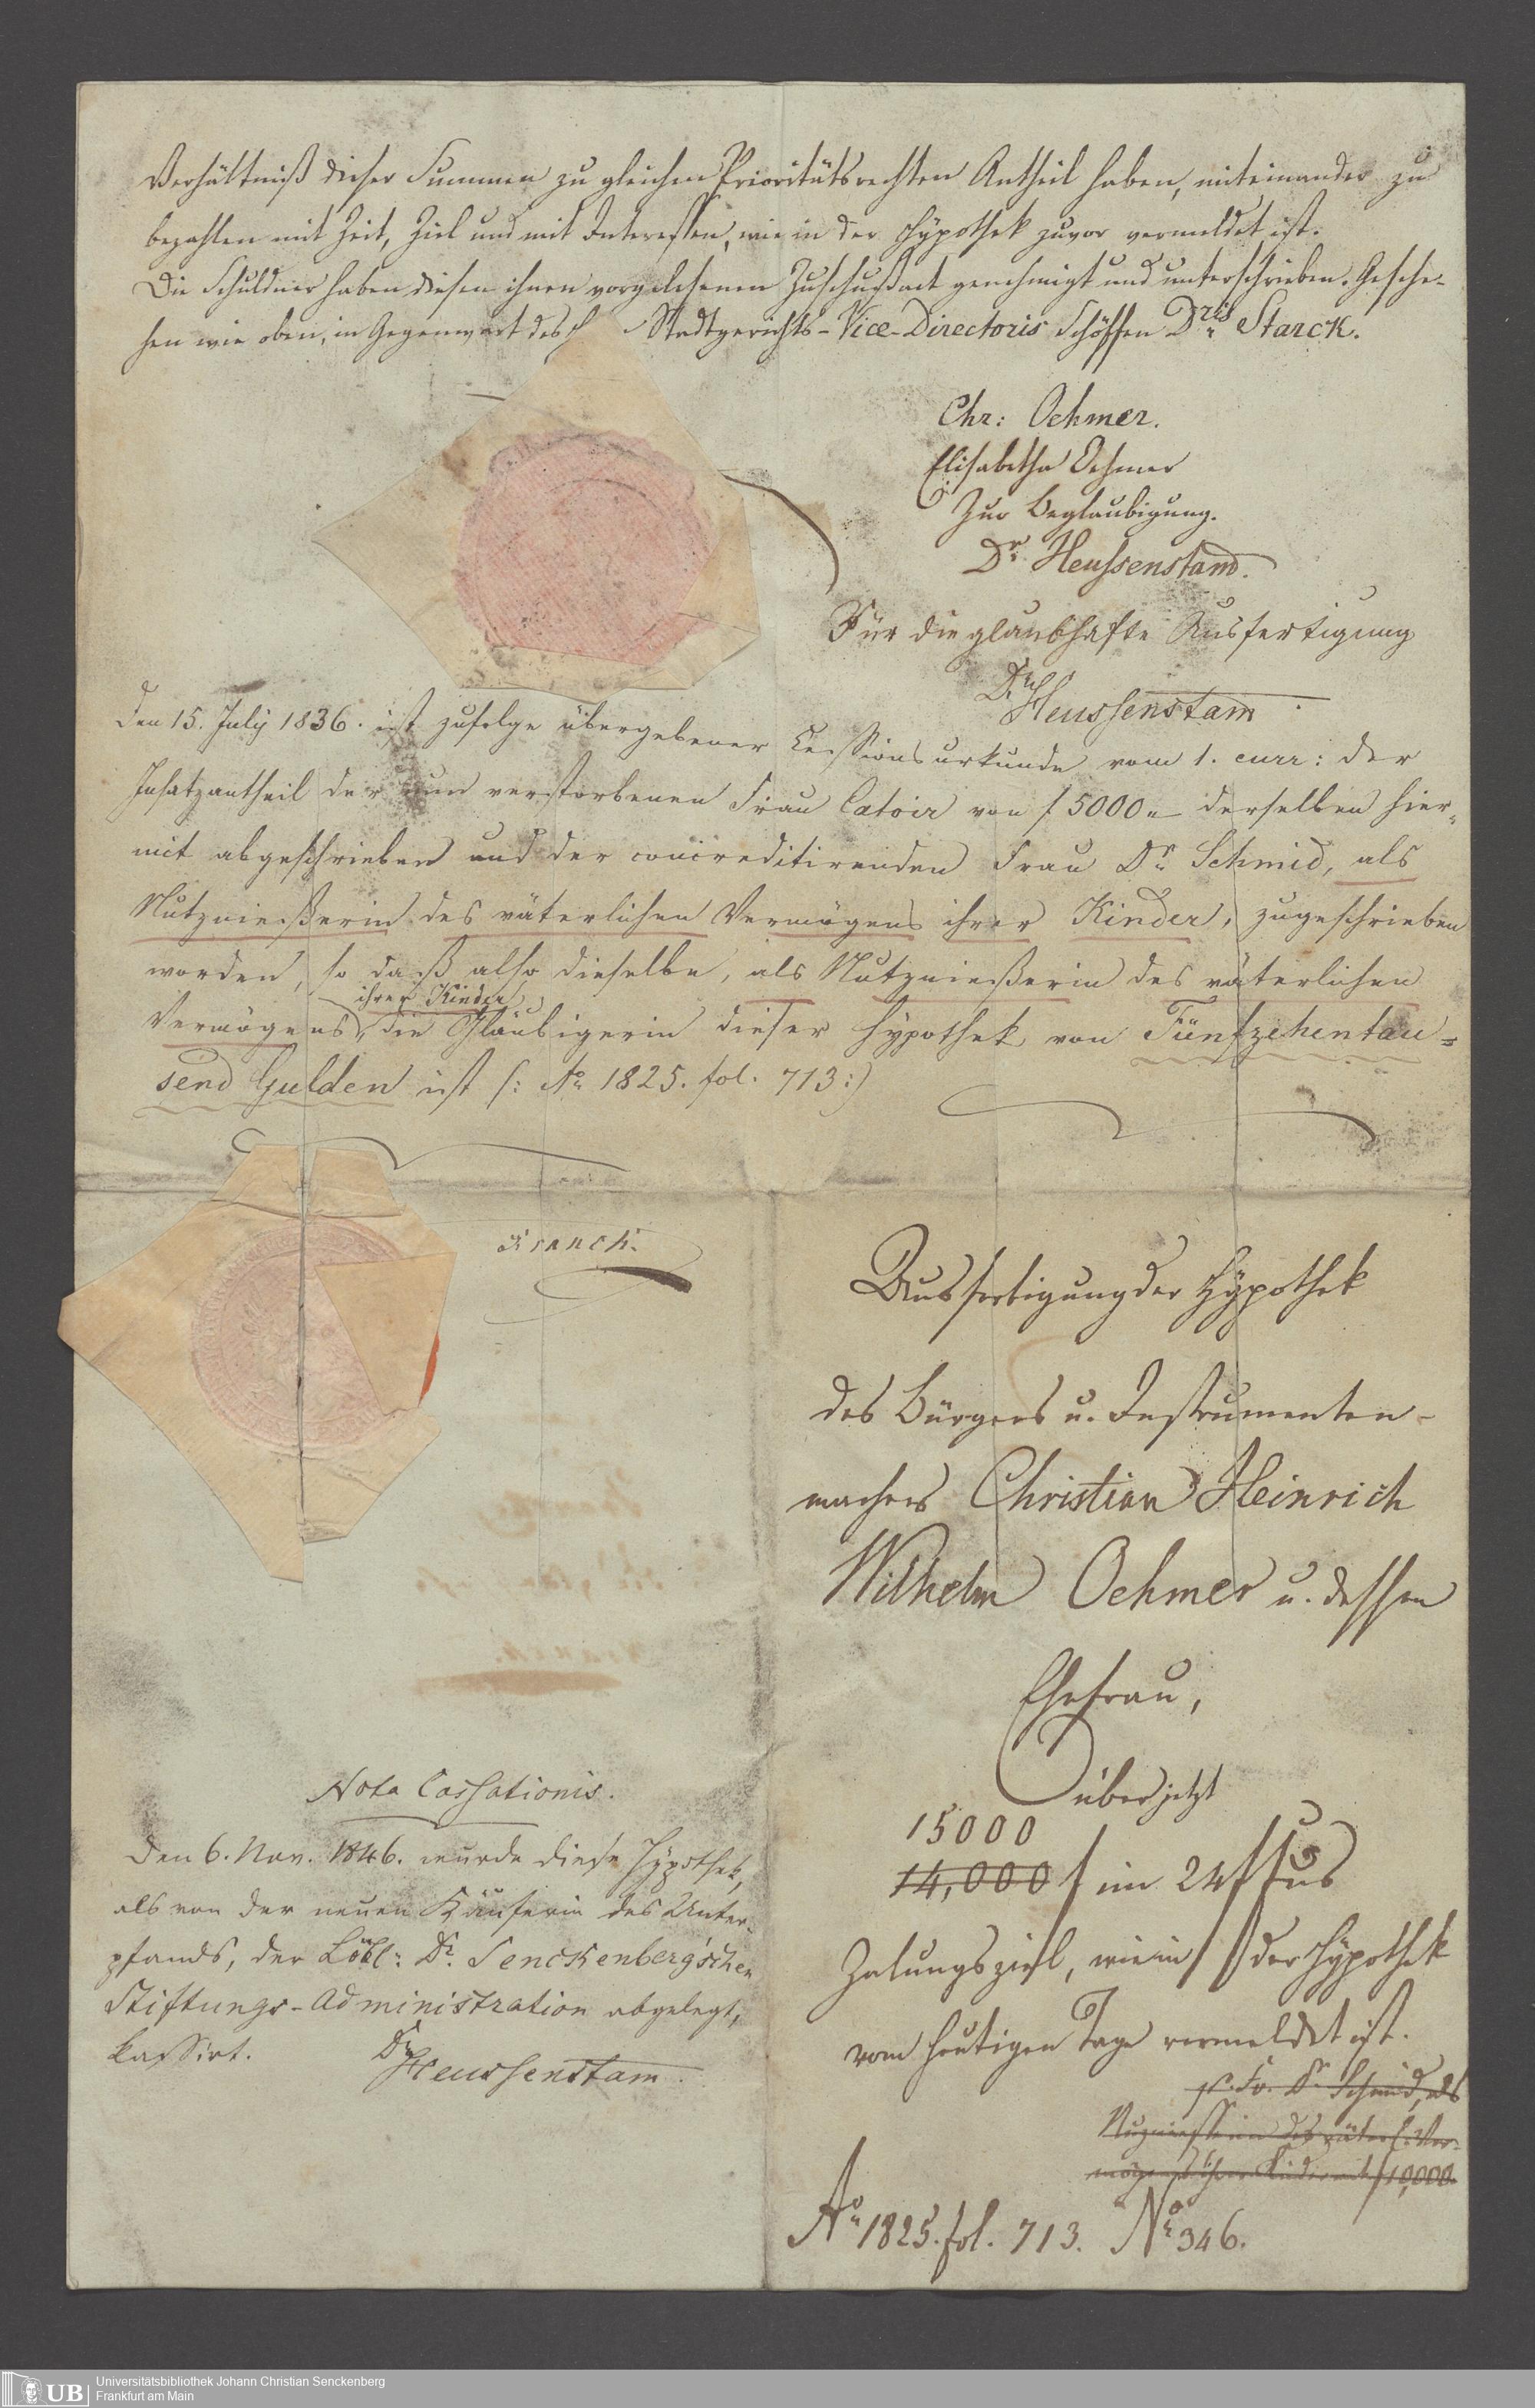 Verhältniß dieser Summen zu gleichen Prioritätsrechten Antheil haben, miteinander zu
bezahlen mit Zeit, Ziel und mit Interessen, wie in der Hypothek zuvor vermeldet ist.
Die Schuldner haben diesen ihnen vorgelesenen Zuschußact genehmigt und unterschrieben. Gesche-
hen wie oben, in Gegenwart des Stadtgerichts-Vice-Directoris Schöffen Dris Starck.
Chr: Oehmer.
Elisabetha Oehmer
Zur Beglaubigung.
Dr. Heussenstam.
Für die glaubhafte Ausfertigung
Dr. Heussenstam
Den 15. July 1836. ist zufolge übergebener Cessionsurkunde vom 1. curr: der
Insatzantheil der nun verstorbenen Frau Catoir von f 5000 „ derselben hier-
mit abgeschrieben und der concreditirenden Frau Dr. Schmid, als
Nutznießerin des väterlichen Vermögens ihrer Kinder, zugeschrieben
worden, so daß also dieselbe, als Nutznießerin des väterlichen
ihrer Kinder
Vermögens, die Gläubigerin dieser Hypothek von Fünfzehentau-
send Gulden ist (: Ao. 1825. fol. 713:)
Franck.
Ausfertigung der Hypothek
des Bürgers u. Instrumenten-
machers Christian Heinrich
Wilhelm Oehmer u. dessen
Ehefrau,
über jetzt
15000
14,000 f im 24 f Fus
Zalungsziel, wie in der Hypothek
vom heutigen Tage vermeldet ist.
pr. Fr. Dr. Schmid, als
Nuzniesserin des väterl. Ver-
mögens ihrer Kinder mit f 10,000.
Ao. 1825. fol. 713. No. 346.
Nota Cassationis.
Den 6. Nov. 1846. wurde diese Hypothek,
als von der neuen Käuferin des Unter-
pfands, der Löbl: Dr. Senckenberg'schen
Stiftungs-Administration abgelegt,
kassirt. Dr. Heussenstam.
UB Universitätsbibliothek Johann Christian Senckenberg
Frankfurt am Main